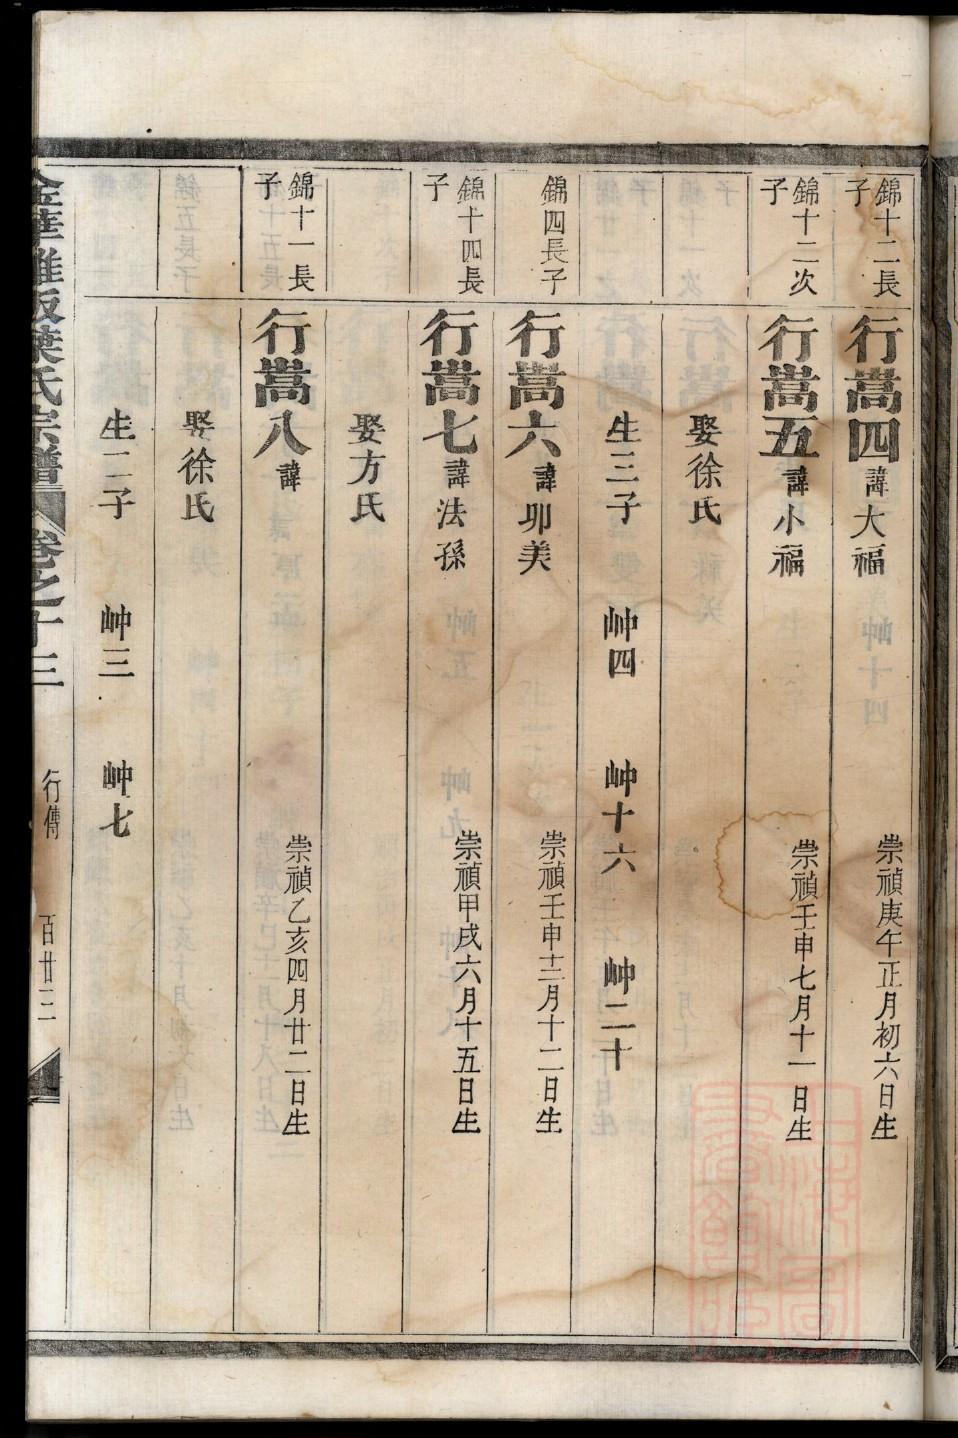 錦十二長子
行嵩四 諱大福 崇禎庚午正月初六日生
錦十二次子
行嵩五 諱小福 崇禎壬申七月十一日生
娶徐氏
生三子 艸四 艸十六 艸二十
錦四長子
行嵩六 諱卯美 崇禎壬申十二月十二日生
錦十四長子
行嵩七 諱法孫 崇禎甲戌六月十五日生
娶方氏
錦十一長子
行嵩八 諱 崇禎乙亥四月廿二日生
娶徐氏
生二子 艸三 艸七
葉氏宗譜 卷之十三 行傳 百廿三